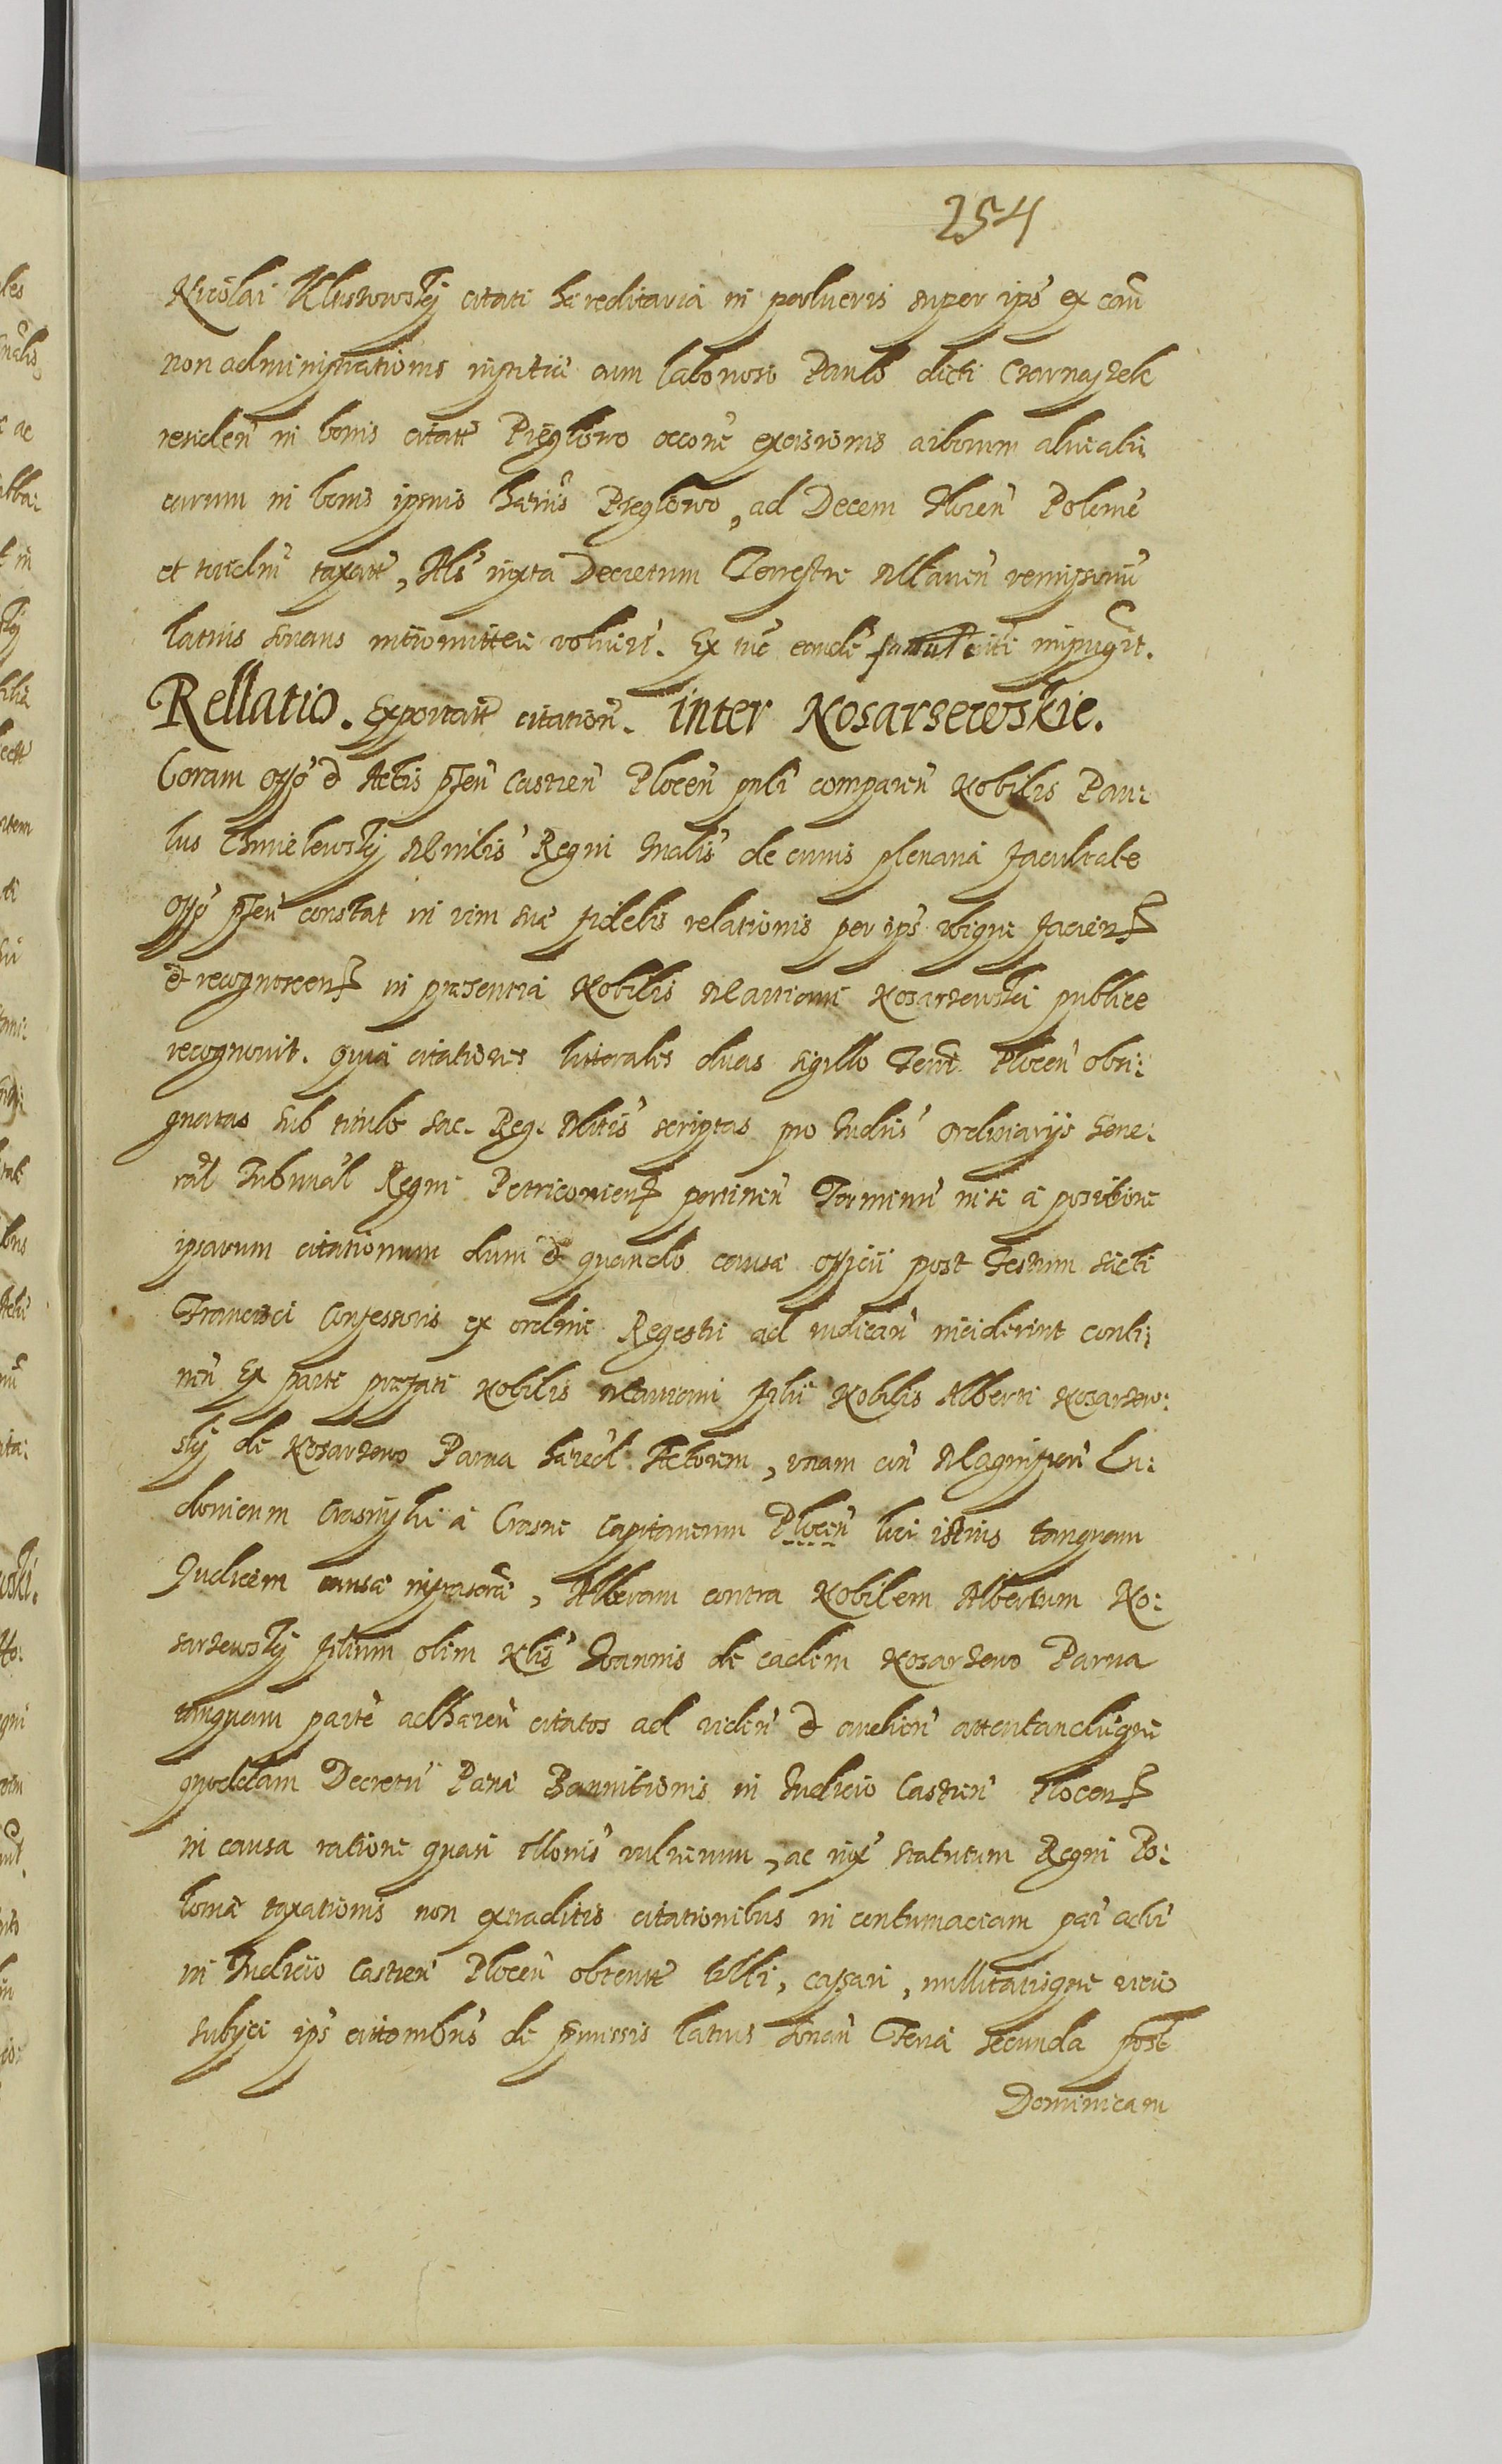 254
Nicolai Kliszowskÿ citati hereditaria in pulueris super ips ex cau
non administrationis iustitiæ cum laborioso Paulo dicti Czarnyszek
residen in bonis citati Pręglowo occone excisionis arborum alueabi
earum in bonis ipsius Preglowo, ad Decem Floren Polonic
et totidm taxatt, Als iuxta Decretum Terrestre Mlauen remissionis
latius sonans introntittere voluerit.
Rellatio. Exportatt citation. inter Kosarsewskie.
Coram offo et Actis psen Castren Plocen psnli comparen Nobilis Pau:
lus Chmielewskÿ Mnilis Regni Gnalis de cuius plenaria facultate
offo psen constat in vim suæ fidelis relationis per ips ibique facien
et recognoscen in præsentia Nobilis Martiani Kosarzewski publice
recognouit. Quia citationes litterales duas sigillo Terre Plocen obsi:
gnatas sub titulo Sac. Reg. Mttis scriptas pro Iudiis Ordinarÿs Gene:
ral Tribunal Regni Petricovien pertinen Terminu in se a positione
ipsarum citationum dum et quando causæ officii post Festum Sācti
Francisci Confessoris ex ordine Regestri ad iudican inciderint conti:
nen Ex parte præfati Nobilis Martiani filii Nobilis Alberti Kosarzew:
skÿ de Kosarzewo Parua hæred Actorem, vnam con Magnificu Lu:
douicum Crasinski a Crasne Capitaneum Plocen loci istius tanquam
Iudicem causæ infrascræ, Alteram contra Nobilem Albertum Ko:
sarzewskÿ filium olim Nlis Ioannis de eadem Kosarzewo Parua
tanquam parte adhæren citatos ad viden et audien attentandũque
quoddam Decretu Pænæ Bannitionis in Iudicio Castren Plocen
in causa ratione quasi illonis vulnerum, ac iux Statutum Regni Po:
loniæ taxationis non extraditis citationibus in contumaciam par acti
in Iudicio Castren Plocen obtentt tolli, cassari, nullitatisque vicio
subÿci ips cittonibus de pmissis latius sonan Feria Secunda post
Dominicam